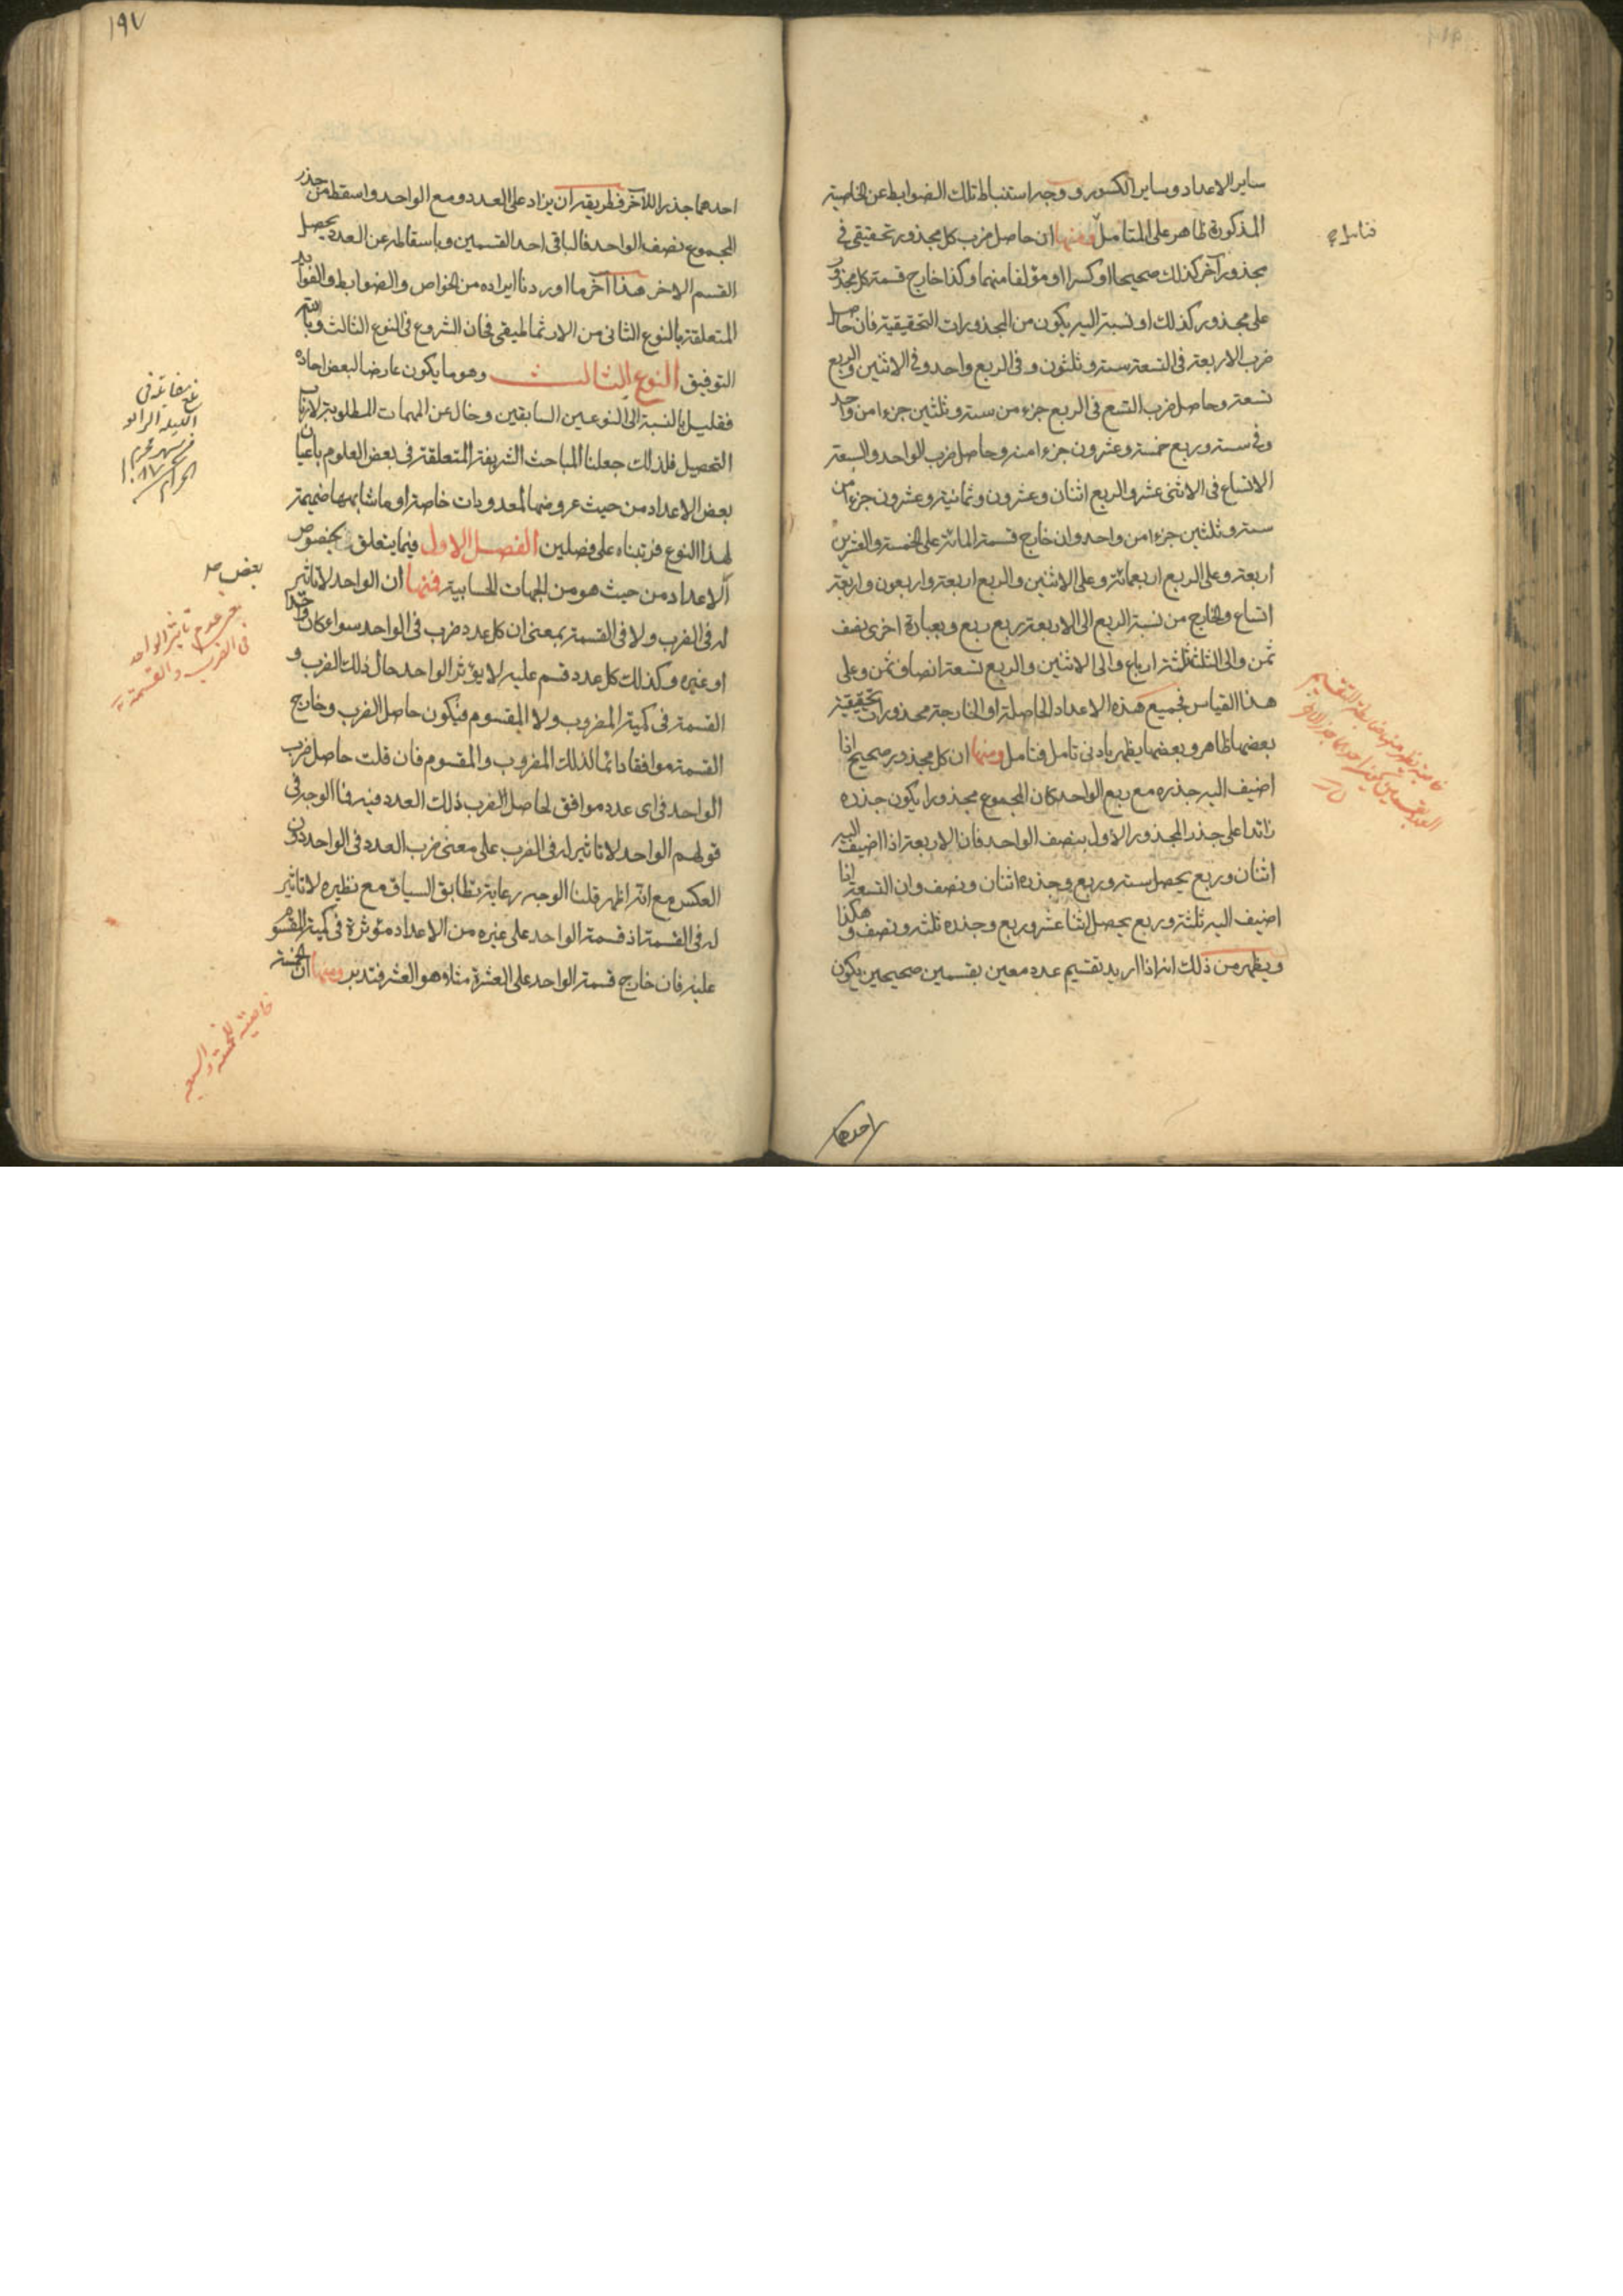 ساير الاعداد وساير الكسور و وجه استنباط تلك الضوابط عن الخاصية
المذكورة ظاهر على المتامل ومنها ان حاصل ضرب كل مجذور تحقيقى فى
مجذور آخر كذلك صحيحا او كسرا او مؤلفا منهما وكذا خارج قسمة كل مجذور
على مجذور كذلك او نسبته اليه يكون من المجذورات التحقيقية فان حاصل
ضرب الاربعة فى التسعة ستة وثلثون وفى الربع واحد وفى الاثنين والربع
تسعة وحاصل ضرب التسع فى الربع جزء من ستة وثلثين جزءا من واحد
وفى ستة وربع خمسة وعشرون جزءا منه وحاصل ضرب الواحد والسبعة
الاتساع فى الاثنى عشر والربع اثنان وعشرون وثمانية وعشرون جزءا من
ستة وثلثين جزءا من واحد وان خارج قسمة المائة على الخمسة والعشرين
اربعة وعلى الربع اربعمائة وعلى الاثنين والربع اربعة واربعون واربعة
اتساع والخارج من نسبة الربع الى الاربعة ربع ربع وبعبارة اخرى نصف
ثمن والى الثلث ثلثة ارباع والى الاثنين والربع تسعة انصاف ثمن وعلى
هذا القياس فجميع هذه الاعداد الحاصلة او الخارجة مجذورات تحقيقية
بعضها ظاهر وبعضها يظهر بادنى تامل فتامل ومنها ان كل مجذور صحيح اذا
اضيف اليه جذره مع ربع الواحد كان المجموع مجذورا يكون جذره
زائدا على جذر المجذور الاول بنصف الواحد فان الاربعة اذا اضيف اليه
اثنان وربع يحصل ستة وربع وجذره اثنان ونصف وان التسعة اذا
اضيف اليه ثلثة وربع يحصل اثنا عشر وربع وجذره ثلثة ونصف وهكذا
ويظهر من ذلك انه اذا اريد تقسيم عدد معين بقسمين صحيحين يكون
احدهما
١٩٧
احدهما جذر اللآخر فطريقه ان يزاد على العدد ومع الواحد واسقط من جذر
المجموع نصف الواحد فالباقى احد القسمين وباسقاطه عن العدد يحصل
القسم الاخر هذا آخر ما اوردنا ايراده من الخواص والضوابط والفوايد
المتعلقة بالنوع الثانى من الارثماطيقى فحان الشروع فى النوع الثالث وبالله
التوفيق النوع الثالث وهو ما يكون عارضا لبعض احاده
فقليل بالنسبة الى النوعين السابقين وخال عن المهمات المطلوبة لارباب
التحصيل فلذلك جعلنا المباحث الشريفة المتعلقة فى بعض العلوم باعيان
بعض الاعداد من حيث عروضها لمعدودات خاصة او ماشابهها ضميمة
لهذا النوع فرتبناه على فصلين الفصل الاول فيما يتعلق بخصوص
الاعداد من حيث هو من الجهات الحسابية فمنها ان الواحد لا تاثير
له فى الضرب ولا فى القسمة بمعنى ان كل عدد ضرب فى الواحد سواء كان واحدا
او غيره وكذلك كل عدد قسم عليه لا يؤثر الواحد حال ذلك الضرب و
القسمة فى كمية المضروب ولا المقسوم فيكون حاصل الضرب وخارج
القسمة موافقا دائما لذلك المضروب والمقسوم فان قلت حاصل ضرب
الواحد فى اى عدد موافق لحاصل الضرب ذلك العدد فيه فما الوجه فى
قولهم الواحد لا تاثير له فى الضرب على معنى ضرب العدد فى الواحد دون
العكس مع انه اظهر قلنا الوجه رعاية تطابق السياق مع نظيره لا تاثير
له فى القسمة اذ قسمة الواحد على غيره من الاعداد مؤثرة فى كمية المقسوم
عليه فان خارج قسمة الواحد على العشرة مثلا هو العشر فتدبر ومنها ان الخمسة
بعض صح
عدم تاثير الواحد
فى الضرب والقسمة